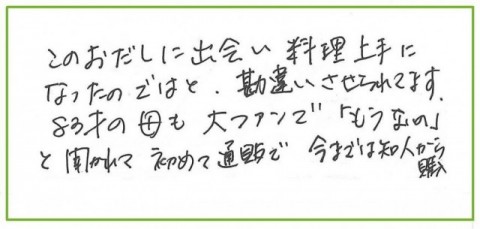 このおだしに出会い 料理上手に
なったのではと、勘違いさせられてます。
83才の母も 大ファンで「もうないの」
と聞かれて 初めて通販で 今までは知人から
購入